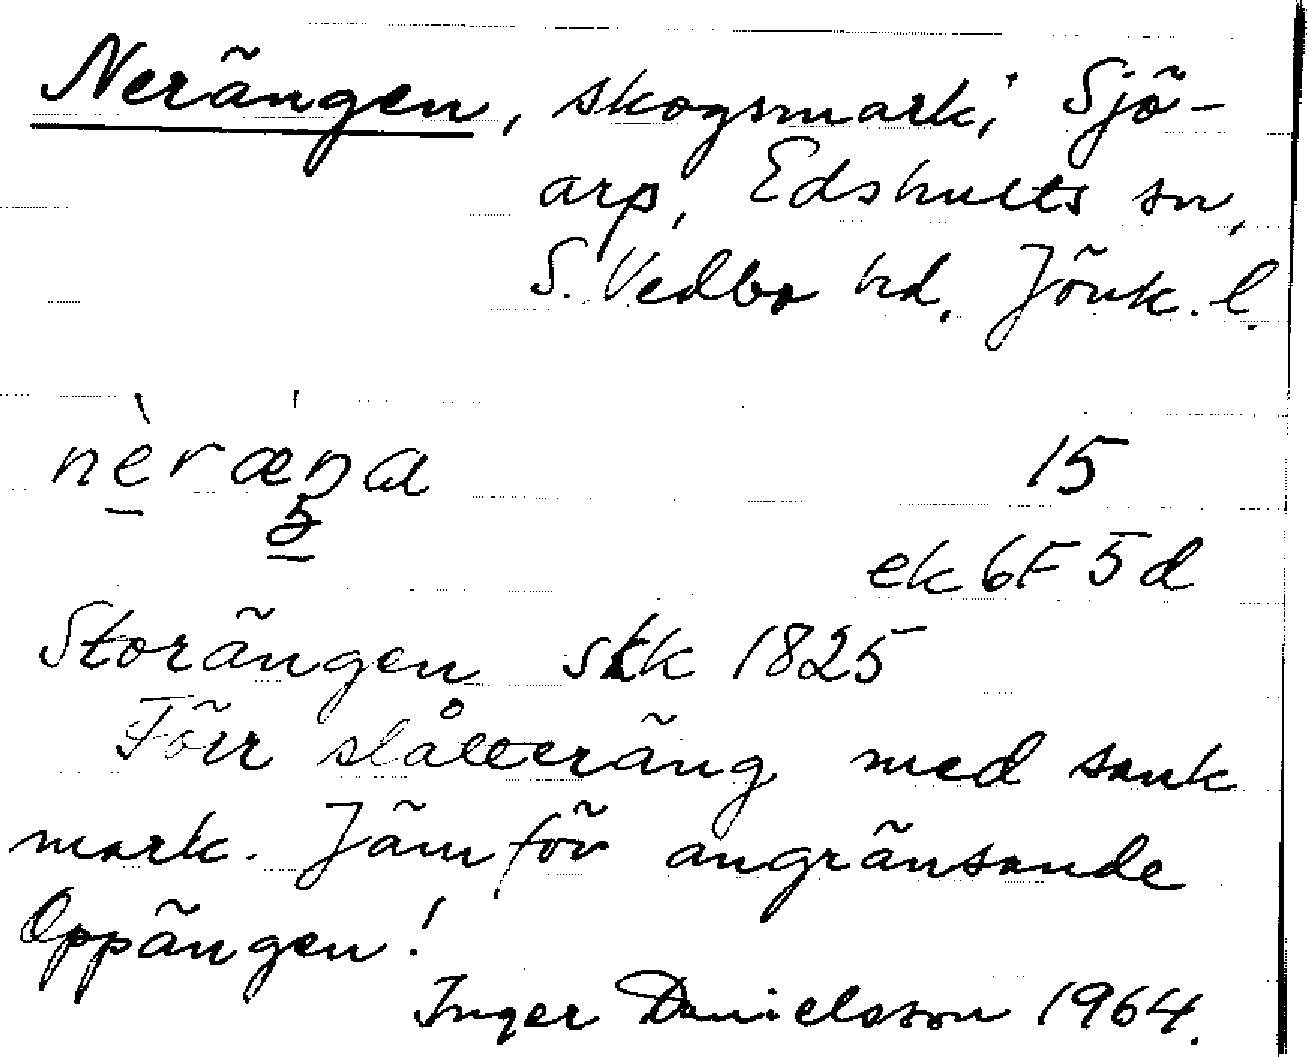 Nerängen, skogsmark i Sjö-
arp, Edshults sn,
S. Vedbo hd, Jönk. l.
nèræ´ŋa
15
ek 6F 5d
Storängen skk 1825
Förr slåtteräng med sank
mark. Jämför angränsande
Oppängen!
Inger Danielsson 1964.